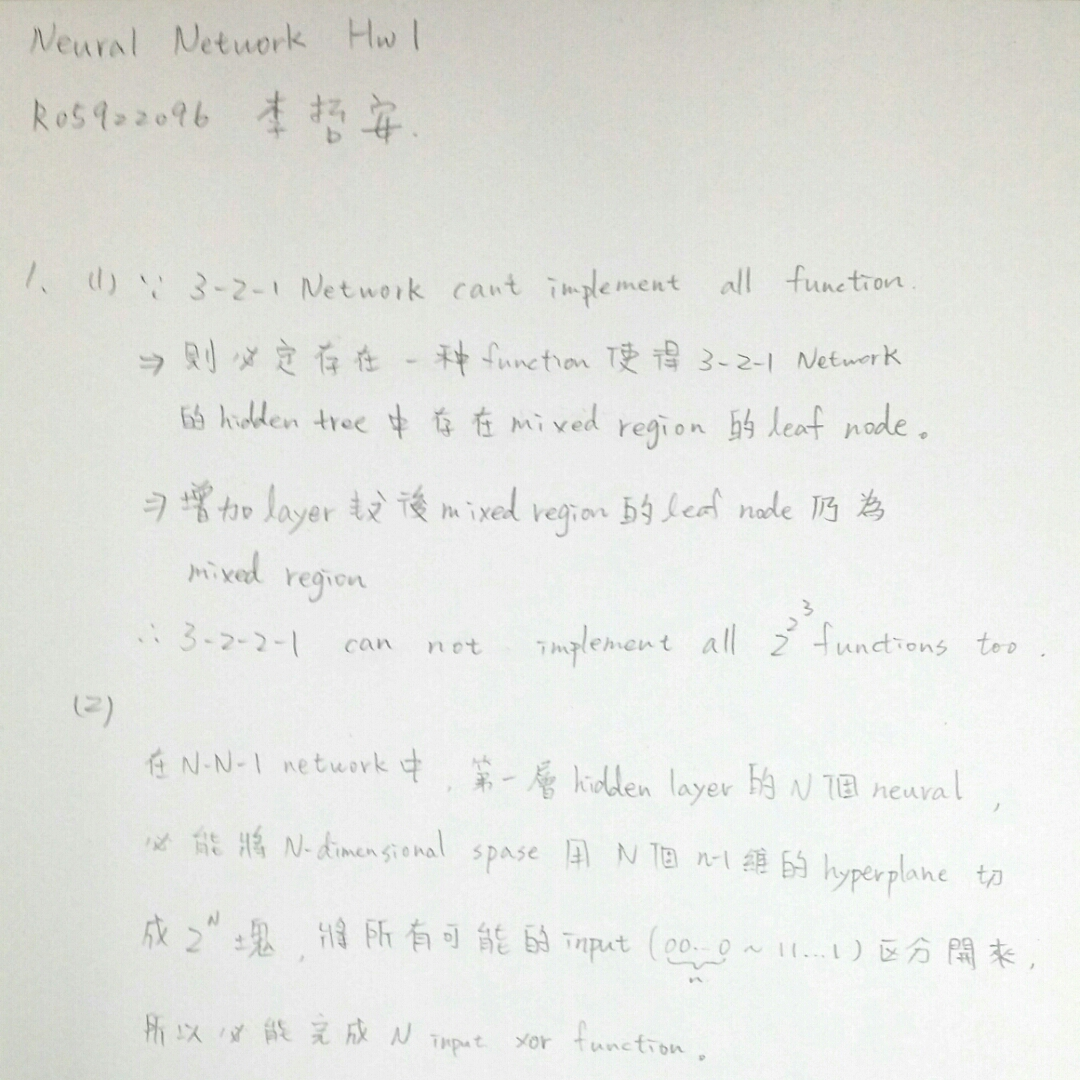 Neural Network Hw1
R05922096 李哲安.
1. (1) ∵ 3-2-1 Network cant implement all function.
⇒ 則必定存在一种function使得 3-2-1 Network
的hidden tree中存在mixed region的leaf node。
⇒ 增加layer數後mixed region的leaf node仍為
mixed region
∴ 3-2-2-1 can not implement all 2^2^3 functions too.
(2)
在N-N-1 network中, 第一層hidden layer的N個neural,
必能將N-dimensional spase用N個n-1維的hyperplane切
成2^N塊, 將所有可能的input (00...0 ~ 11...1) 区分開來,
n
所以必能完成N input xor function。